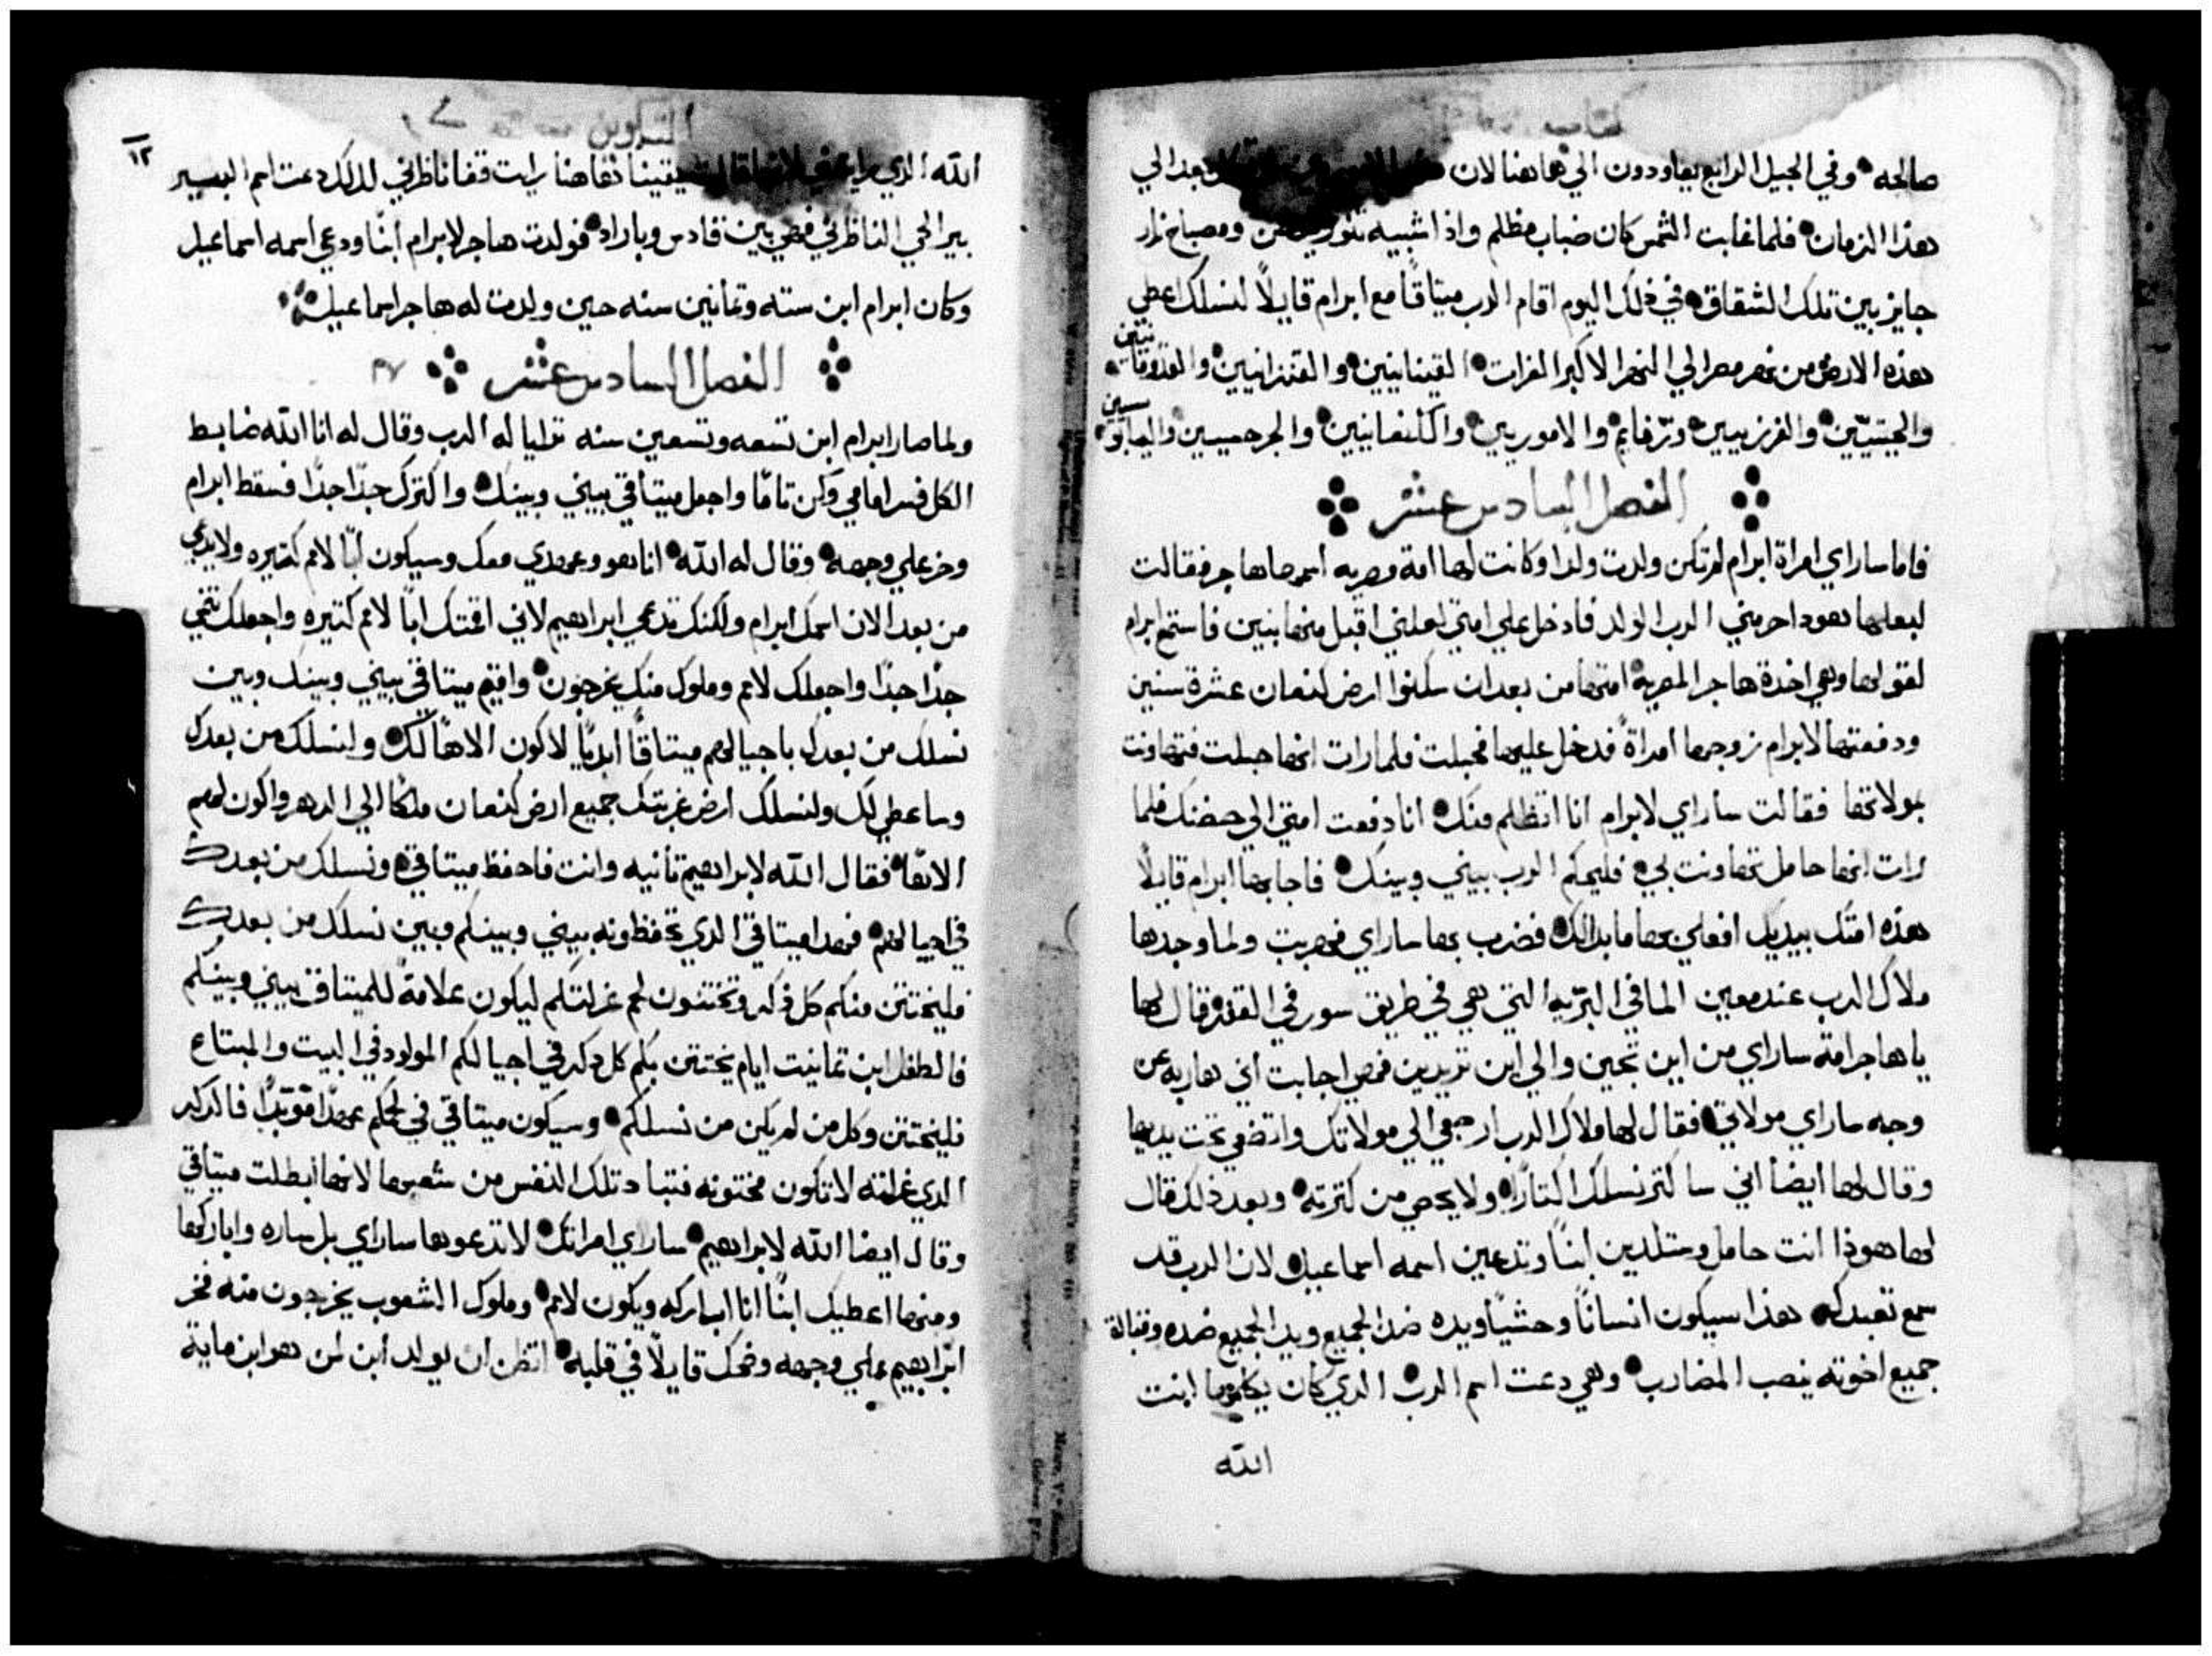 كتاب
صالحه وفي الجيل الرابع يعاودون الي هاهنا لان بعد الي
هذا الزمان فلما غابت الشمس كان ضباب مظلم واذا شبيه تنور ومصباح نار
جايز بين تلك الشقاق في ذلك اليوم اقام الرب ميتاقًا مع ابرام قايلاً لنسلك اعطي
هذه الارض من نهر مصر الي النهر الاكبر الفرات القينانيين والقنزانيين والقدوقا
نيين
والحيتيين والفرزيين ورفايم والاموريين والكنعانيين والجرجسيين واليابو
سيين
الفصل السادس عشر
فاما ساراي امراة ابرام لم تكن ولدت ولدا وكانت لها امة مصريه اسمها هاجر فقالت
لبعلها هوذا حرمني الرب الولد فادخل علي امتي لعلني اقبل منها بنين فاستمع ابرام
لقولها وهي اخدة هاجر المصرية امتها من بعد ان سكنوا ارض كنعان عشرة سنين
ودفعتها لابرام زوجها امراةً فدخل عليها فحبلت فلما رات انها حبلت فتهاونت
بمولاتها فقالت ساراي لابرام انا اتظلم منك انا دفعت امتي الي حضنك فلما
رات انها حامل تهاونت بي فليحكم الرب بيني وبينك فاجابها ابرام قايلاً
هذه امتك بيديك افعلي بها ما بدالك فضرب بها ساراي فهربت ولما وجدها
ملاك الرب عند معين الما في البريه التي هي في طريق سور في القفر وقال لها
يا هاجر امة ساراي من اين تجين والي اين تريدين فهي اجابت اني هاربه عن
وجه ساراي مولاتي فقال لها ملاك الرب ارجعي الي مولاتك واتضعي تحت يديها
وقال لها ايضا اني ساكتر نسلك اكتارًا ولا يحصي من كترته وبعد ذلك قال
لها هوذا انت حامل وستلدين ابنًا وتدعين اسمه اسماعيل لان الرب قد
سمع تعبدك هذا سيكون انسانًا وحشيًا ويده ضد الجميع ويد الجميع ضده وقبالة
جميع اخوته ينصب المضارب وهي دعت اسم الرب الدي كان يكلمها انت
الله
التكوين
١٢
الله الدي يقينا هاهنا رايت قفا ناظرني لدلك دعت اسم البير
بير الحي الناظرني فهي بين قادس وباراد فولدت هاجر لابرام ابنًا ودعي اسمه اسماعيل
وكان ابرام ابن سته وتمانين سنه حين ولدت له هاجر اسماعيل
الفصل السادس عشر
ولما صار ابرام ابن تسعه وتسعين سنه ترايا له الرب وقال له انا الله ضابط
الكل فسر امامي وكن تامًا واجعل ميتاقي بيني وبينك واكترك جدًا جدًا فسقط ابرام
وخر علي وجهه وقال له الله انا هو وعهدي معك وسيكون ابًا لامم كتيره ولا يدعي
من بعد الان اسمك ابرام ولكنك تدعي ابراهيم لاني اقمتك ابًا لامم كتيره واجعلك تنمي
جدًا جدًا واجعلك لامم وملوك منك يخرجون واقيم ميتاقي بيني وبينك وبين
نسلك من بعدك باجيالهم ميتاقًا ابديًا لاكون الاهًا لك ولنسلك من بعدك
وساعطي لك ولنسلك ارض غربتك جميع ارض كنعان ملكًا الي الدهر واكون لهم
الاهًا فقال الله لابراهيم تانيه وانت فاحفظ ميتاقي ونسلك من بعدك
في اجيالهم فهدا ميتاقي الدي تحفظونه بيني وبينكم وبين نسلك من بعدك
فليختتن منكم كل ذكر وتختنون لحم غرلتكم ليكون علامةً للميتاق بيني وبينكم
فالطفل ابن تمانيت ايام يختتن بكم كل دكر في اجيالكم المولود في البيت والمبتاع
فليختتن وكل من لم يكن من نسلكم وسيكون ميتاقي في لحمكم عهدًا موبدًا فالدكر
الدي غرلته لا تكون مختونه فتباد تلك النفس من شعبها لانها ابطلت ميتاقي
وقال ايضا الله لابراهيم ساراي امراتك لا تدعوها ساراي بل ساره واباركها
ومنها اعطيك ابنًا انا اباركه ويكون لامم وملوك الشعوب يخرجون منه فخر
ابراهيم علي وجهه وضحك قايلاً في قلبه اتظن ان يولد ابن لمن هو ابن ماية